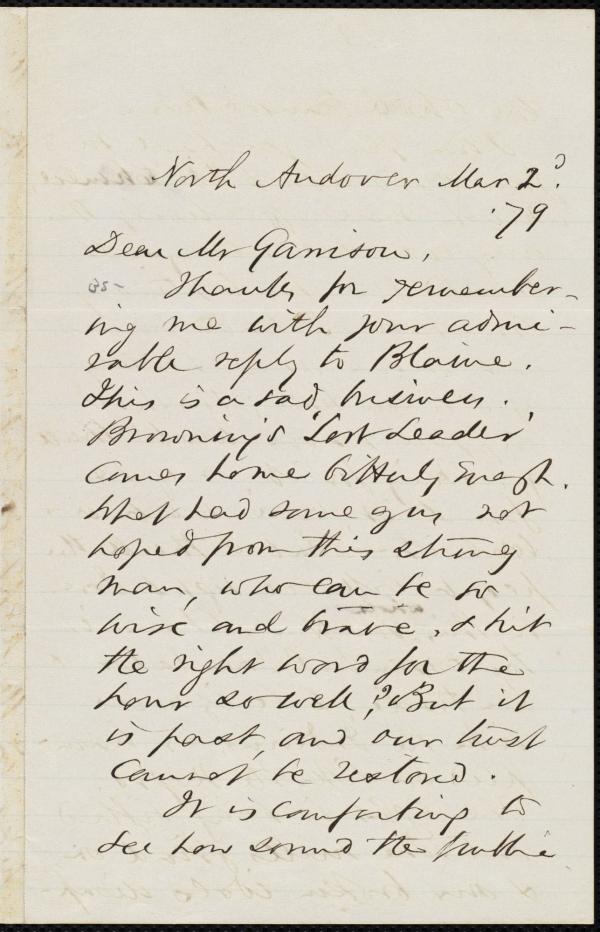 North Andover Mar 2d.
'79
Dear Mr Garrison,
Thanks for remember-
ing me with your admi-
rable reply to Blaine.
This is a sad business.
Browning's 'Lost Leader'
comes home bitterly enough.
What had some of us not
hoped from this strong
man, who can be so
wise and brave, & hit
the right word for the
hour so well? But it
is past, and our trust
cannot be restored.
It is comforting to
see how sound the public